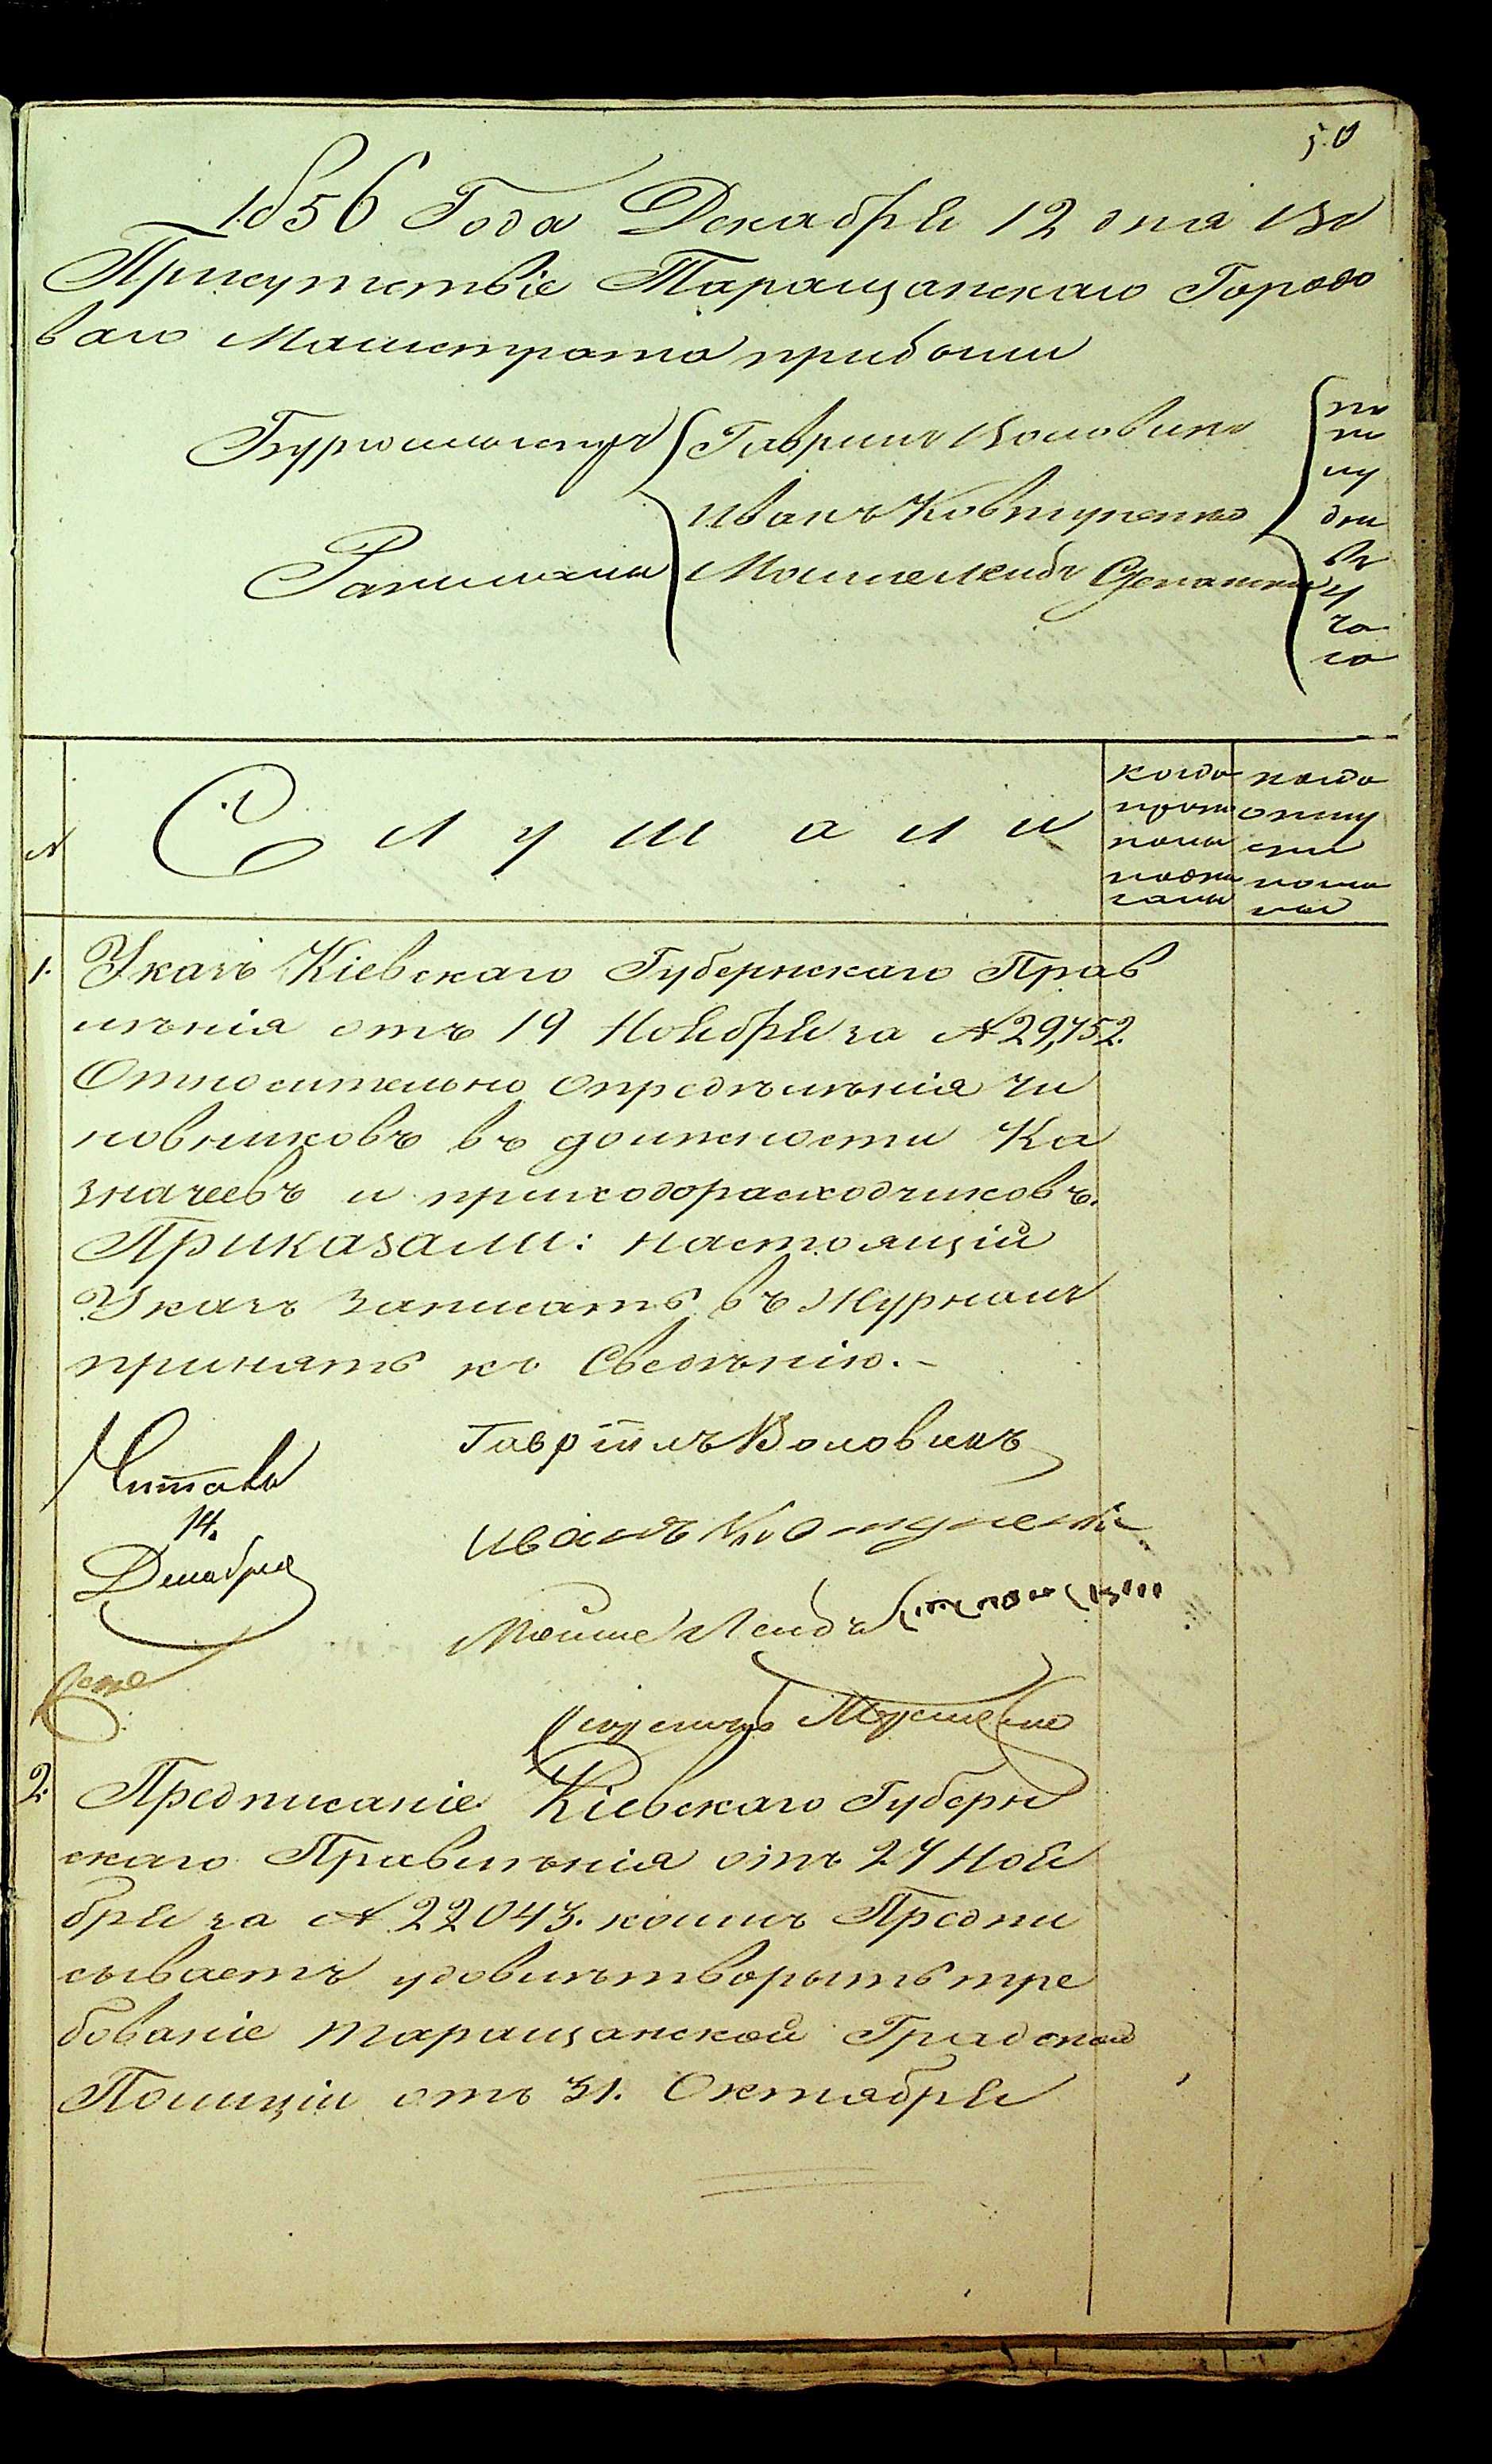 50
1856 Года Декабря 12 дня во
Присутствіе Таращанскаго Городо
ваго Магистрата прибыли
Бургомистръ Гаврилъ Воловикъ
Иванъ Ковтуненко
Ратманы Мошко Лейбъ
по
по
лу
дни
въ
ча
са
№ Слушали
когда
прото
колы
подпи
саны
когда
отпу
ски
посла
ны
1. Указъ Кіевскаго Губернскаго Прав
лѣнія отъ 19 Ноября за № 29,752.
Относительно опредѣлѣнія чи
новниковъ въ должности Ка
значеевъ и приходорасходчиковъ.
Приказали: настоящій
Указъ записать въ Журналъ
принять къ Сведѣнію.-
Читалъ
14.
Декабря
Гавріилъ Воловикъ
Иванъ Ковтуненко
Мошко Лейбъ
2. Предписаніе Кіевскаго Губерн
скаго Правлѣнія отъ 27 Ноя
бря за № 22043. коимъ Предпи
сываетъ удовилѣтворыть тре
бованіе таращанской Градской
Полиціи отъ 31. Октября